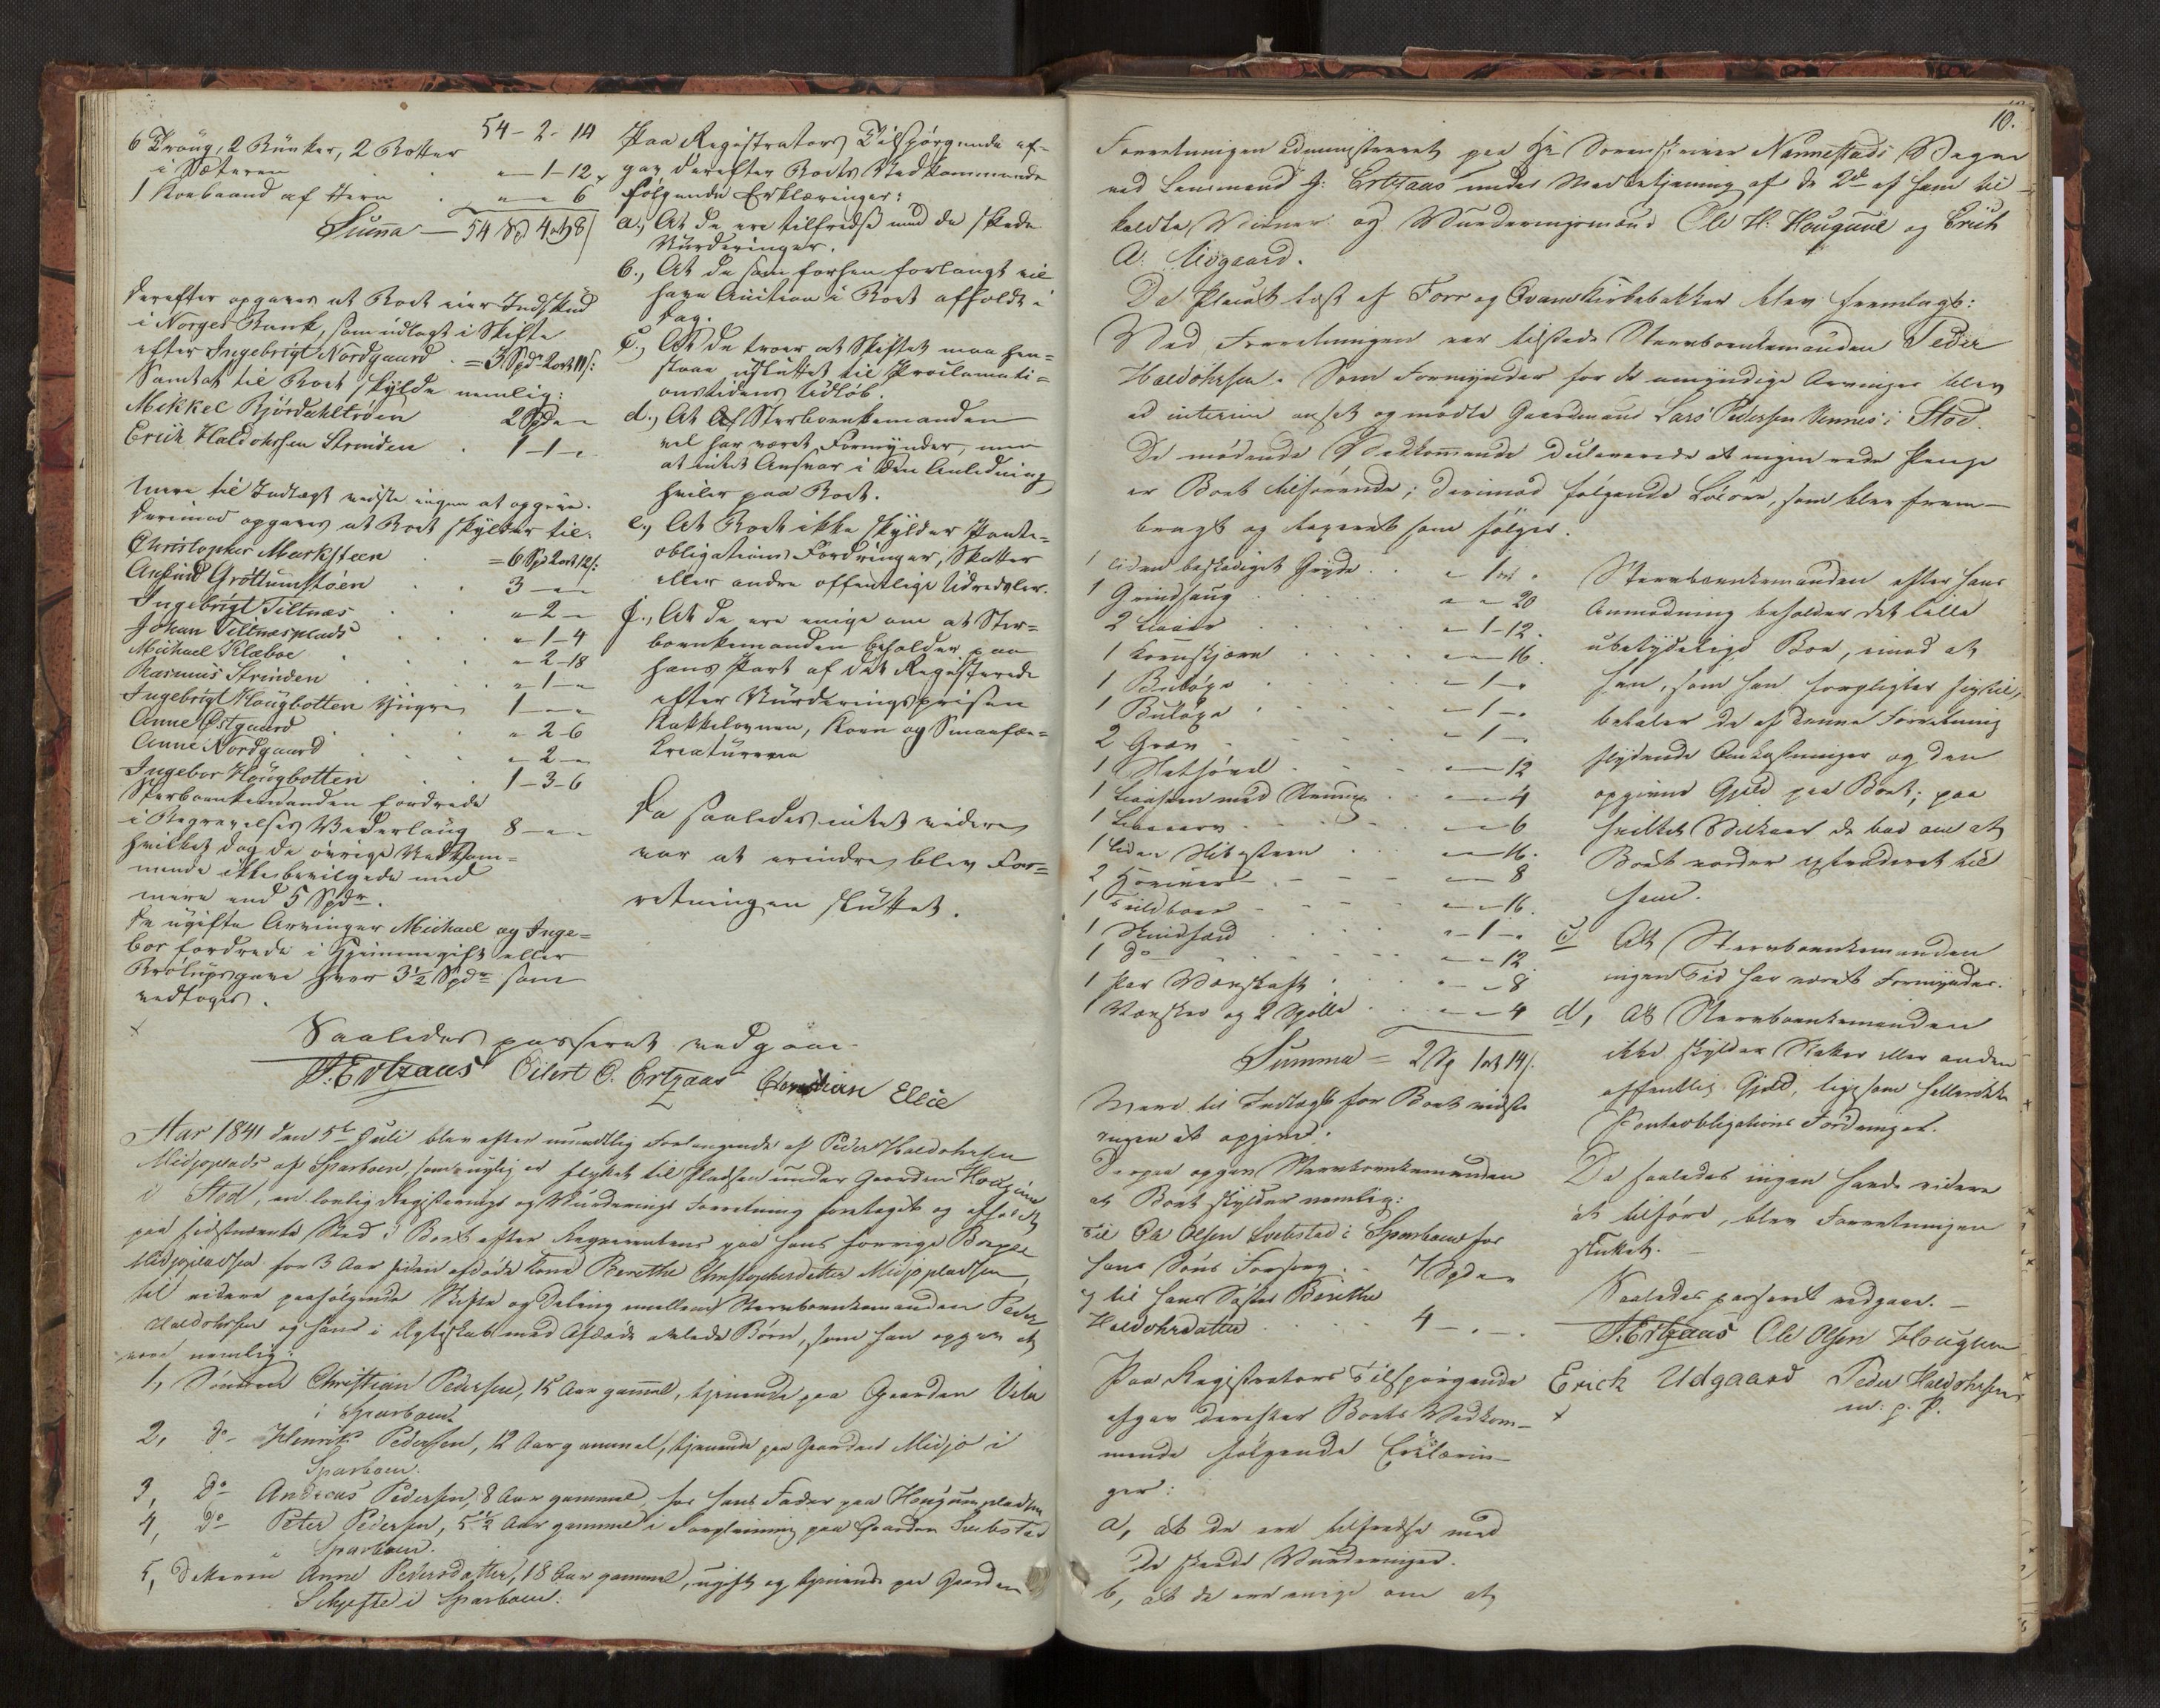 54 - 2 - 14
6 Traug, 2 Bunker, 2 Botter
i Sæteren - 1 - 12
1 Kovebaand af Horn 6
Suma - 54 Spd 4 ort 8/
Derefter opgaves at Boet eier Indskud
i Norges Bank, som udlagt i Skifte
efter Ingebrigt Nordgaard = 3 Spdr
Samtat til Boet skylde nemlig:
Mikkel Bjørdahltrøen 2 Spd
Erich Haldohrsen Strinden 1 - 1 -
Mere til Indtægt vidste ingen at opgive.
Derimod opgaves at Boet skylder til:
Christopher Marksteen = 6 Spd 2 ort 12/:
Grøttumstøen 3 - -
Ingebrigt Tiltnæs - 2 -
Johan Tiltnæsplads - 1 - 4
Michael Klæboe - 2 - 18
Rasmus Strinden - 1 -
Ingebrigt Hougbotten 1 - -
Anne Østgaard - 2 - 6
Anne Nordgaard - 2 -
Ingebor Hougbotten 1 - 3 - 6
Sterboenkemanden fordrede
i Begravelses Vederlaug 8 - -
hvilket dog de øvrige Vedkom=
mende ikke bevilgede med
mere end 5 Spdr.
De ugifte Arvinger Michael og Inge=
bor fordrede i Hjemmegift eller
Brølupsgave hver 3½ Spdr som
vedtoges.
Paa Registrators Tilspørgende af=
gav derefter Boets Vedkommende
følgende Erklæringer:
a., At de ere tilfredse med de skede
Vurderinger.
b., At de som forhen forlangt vil
have Auction i Boet afholdt i
Dag.
c., At de troer at Skiftet maa hen=
staae usluttet til Proclamati=
onstidens Udløb.
d., At Sterboenkemanden
vel har været Formynder, men
at intet Ansvar i den Anledning
hviler paa Boet.
e., At Boet ikke skylder Pante=
obligations Fordringer, Skatter
eller andre offentlige Udredsler.
f., At de ere enige om at Ster=
boenkemanden beholder paa
hans Part af det Registerede
efter Vurderingsprisen
Kakkelovnen, Korn og Smaafæ=
kreaturerne
Da saaledes intet videre
var at erindre, blev For=
retningen sluttet.
Saaledes passeret vedgaae
J. Ertzaas Eilert O. Ertzaas Christian Ellie
Aar 1841 den 5te Juli blev efter mundtlig Forlangende af Peder Haldohrsen
Midjoplads af Sparboen, som nylig er flyttet til Pladsen under Gaarden Hougum
i Stod, en lovlig Registerings og Vurderings Forretning foretaget og afholdt
paa sidstnævnte Sted i Boet efter Reqvirentens paa hans forrige Bopæl
Midjopladsen for 3 Aar siden afdøde Kone Berethe Christophersdatter Midjopladsen,
til videre paafølgende Skifte og Deling imellem Stervboenkemanden Peder
Haldohrsen og hans i Ægteskab med Afdøde avlede Børn, som han opgav at
være nemlig:
1, Sønnen Christian Pedersen, 15 Aar gammel, tjenende paa Gaarden Vibe
i Sparboen
2, do Henrik Pedersen, 12 Aar gammel, tjenende paa Gaarden Midjo i
Sparboen.
3, do Andreas Pedersen, 8 Aar gammel, hos hans Fader paa Hougumpladsen
4, do Peter Pedersen, 5½ Aar gammel i Forpleining paa Gaarden Svebstad
i Sparboen.
5, Datteren Anne Pedersdatter, 18 Aar gammel, ugift og tjenende paa Gaarden
Schjefte i Sparboen.
10.
Forretningen administreret paa Hr Sorenskriver Nannestads Vegne
ved Lensmand J: Ertzaas under Medbetjening af de 2de af ham til-
kaldte Vidner og Vurderingsmænd Ole H: Hougum og Erich
A: Udgaard.
Da Placat læst af For og Qvams Kirkebakker blev fremlagt:
Ved Forretningen var tilstede Stervboenkemanden Peder
Haldohrsen. Som Formynder for de umyndige Arvinger blev
ad interim ansat og mødte Gaardmand Lars Pedersen Vennes i Stod.
De mødende Vedkommende declarerede at ingen rede Penge
er Boet tilhørende; derimod følgende Løsøre, som blev frem-
bragt og taxeret som følger.
1 liden beskadiget Gryde - 1 ort -
1 Grindsaug - - 20
2 Liaaer - 1 - 12.
1 Kornskjære - - 16.
1 Buløxe - 1 -
1 Buløxe - 1 -
2 Grev - 1 -
1 - - 12
1 - - 4
1 - - 6
1 liden - - 16.
2 - - 8
1 - - 16.
1 Skindfæld - 1 -
1 do - - 12.
1 Par - - 8
1 og 2 Spolle - - 4
Summa = 2 Sp 1 ort 14/.
Mere til Indtægt for Boet vidste
ingen at opgive.
Derpaa opgav Stervboenkemanden
at Boet skylder nemlig:
Til Ole Olsen Svebstad i Sparboen for
hans Søns Forsorg 7 Spd - -
og til hans Søster Berethe
Haldohrsdatter 4 - -
Paa Registrators Tilspørgende
afgav derefter Boets Vedkom-
mende følgende Erklærin-
ger:
a, at de ere tilfredse med
de skeede Vurderinger.
b, at de ere enige om at
Stervboenkemanden efter hans
Anmodning beholder det lille
ubetydelige Boe, imod at
han, som han forpligter sig til,
betaler de af denne Forretning
flydende Omkostninger og den
opgivne Gjeld paa Boet; paa
hvilket Vilkaar de bad om at
Boet vorder extraderet til
ham.
c, At Stervboenkemanden
ingen Tid har været Formynder.
d, At Stervboenkemanden
ikke skylder Skatter eller anden
offentlig Gjeld, ligesom heller ikke
Panteobligations Fordringer.
Da saaledes ingen havde videre
at tilføre, blev Forretningen
sluttet.
Saaledes passeret vedgaaes.
J. Ertzaas Ole Olsen Hougum
Erick Udgaard Peder Haldohrsen
m: p. P.